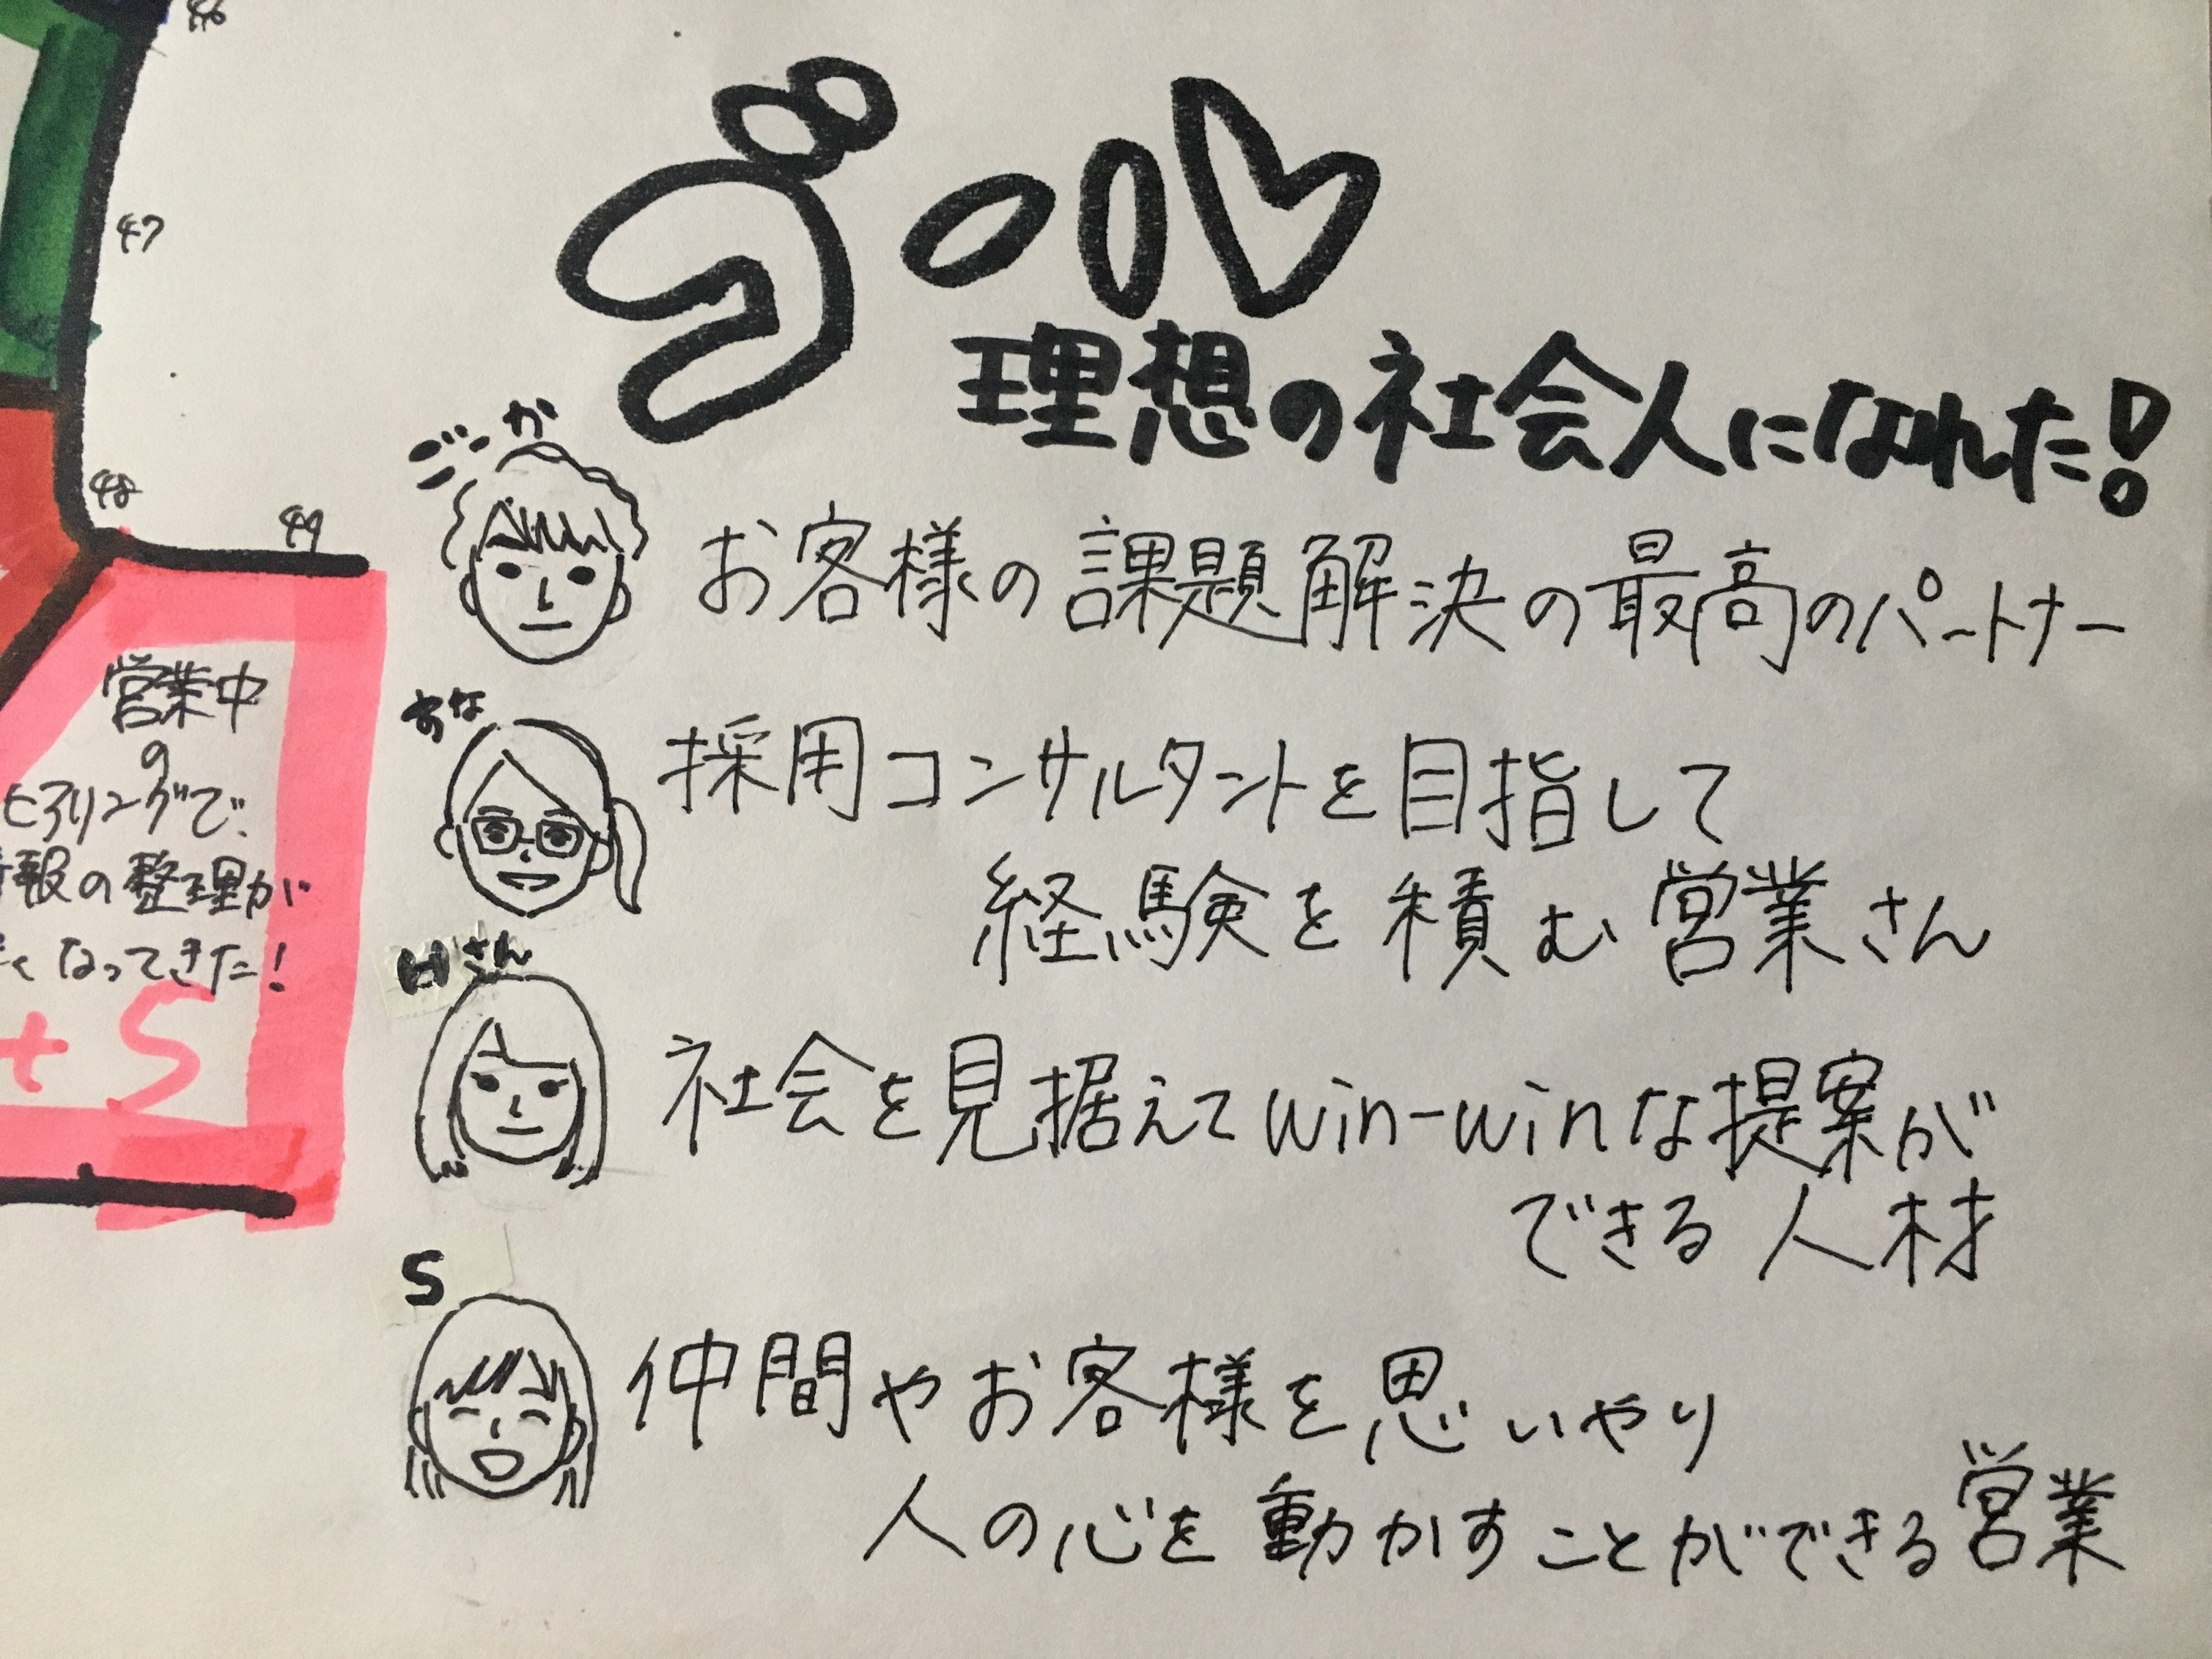 46
47
48
49
ゴール
理想の社会人になれた!
ごーか
お客様の課題解決の最高のパートナー
すな
採用コンサルタントを目指して
経験を積む営業さん
Hさん
社会を見据えてwin-winな提案が
できる人材
S
仲間やお客様を思いやり
人の心を動かすことができる営業
営業中
の
ヒアリングで、
報の整理が
くなってきた!
+5